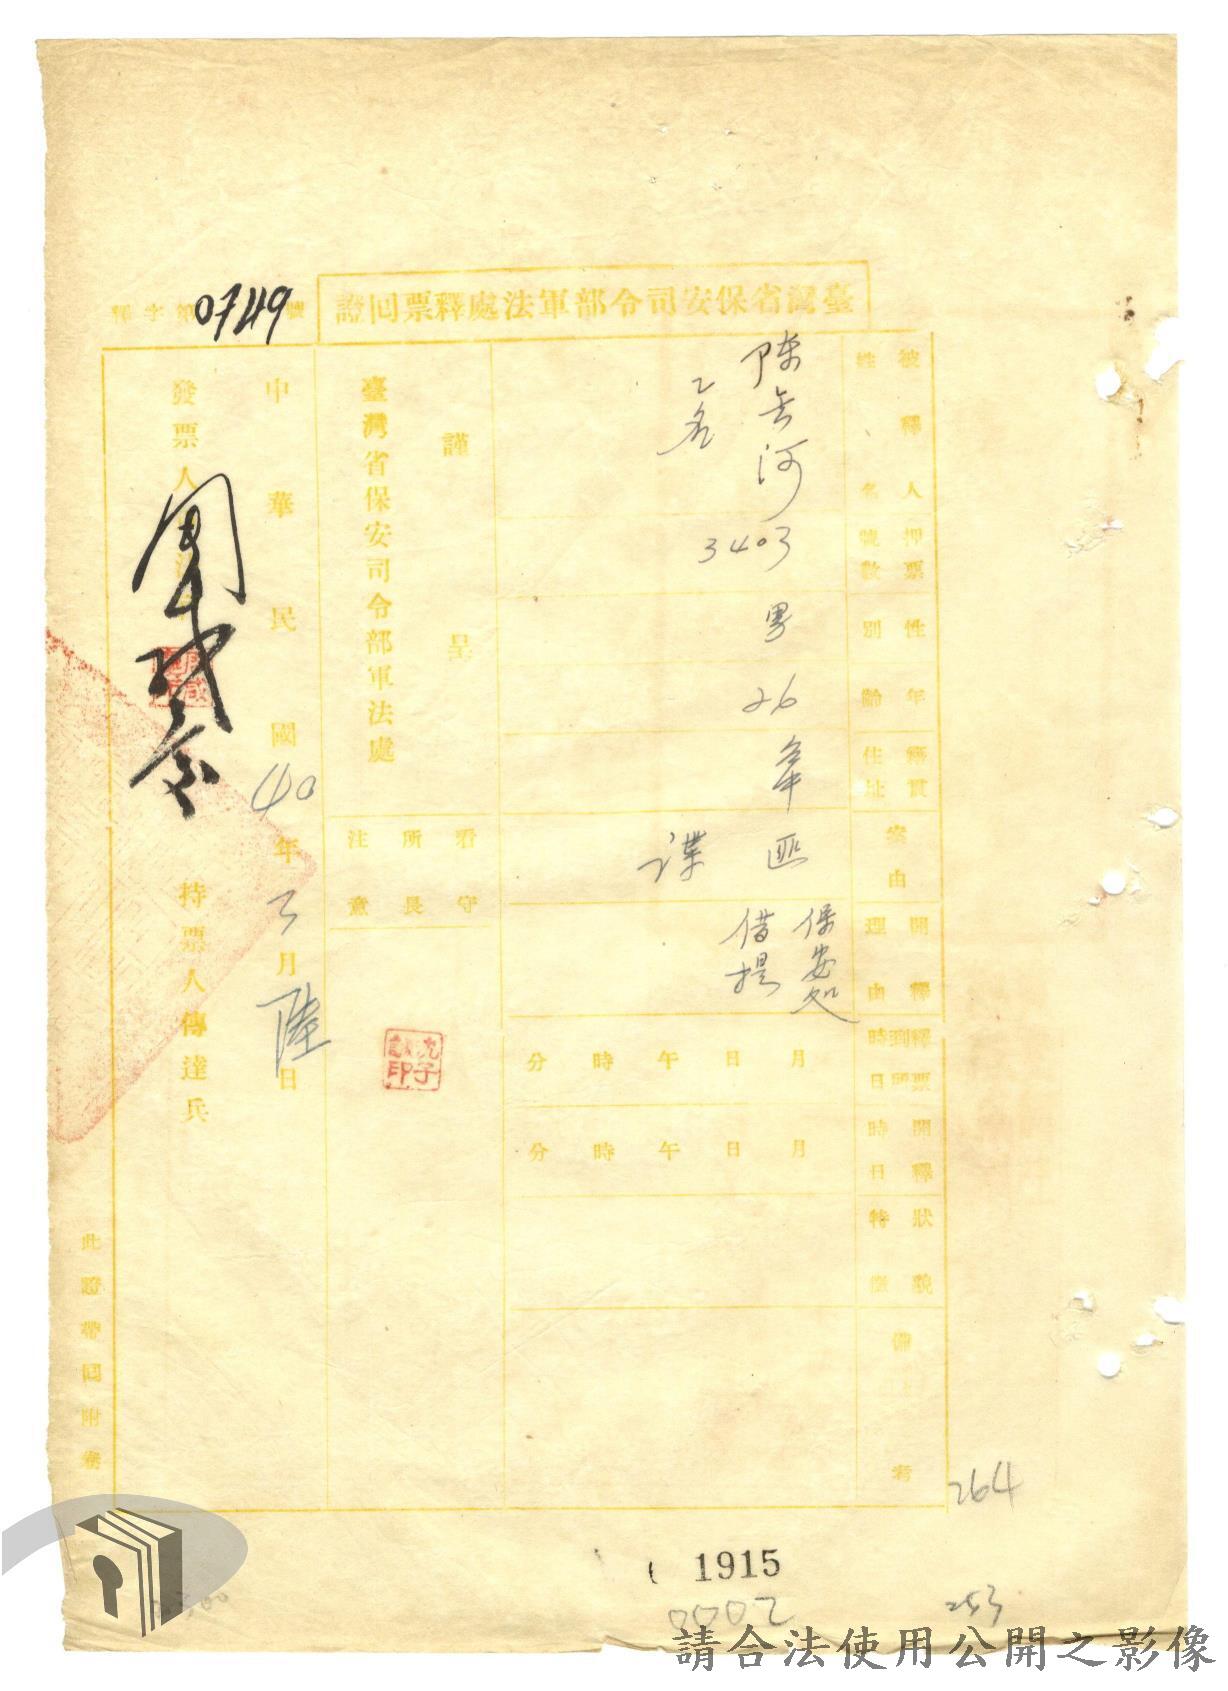 臺灣省保安司令部軍法處釋票回證
釋字第0749號
被釋人姓名
陳 河
乙名
押票號數
3403
性別
男
年齡
26
籍貫住址
案由
匪諜
開釋理由
保安処
借提
釋票到所時日
月 日 午 時 分
開釋時日
月 日 午 時 分
狀貌特徵
備考
謹呈
臺灣省保安司令部軍法處
看守所長注意
中華民國40年3月陸日
發票人
持票人傳達兵
此證帶回附卷
264
1915
253
請合法使用公開之影像